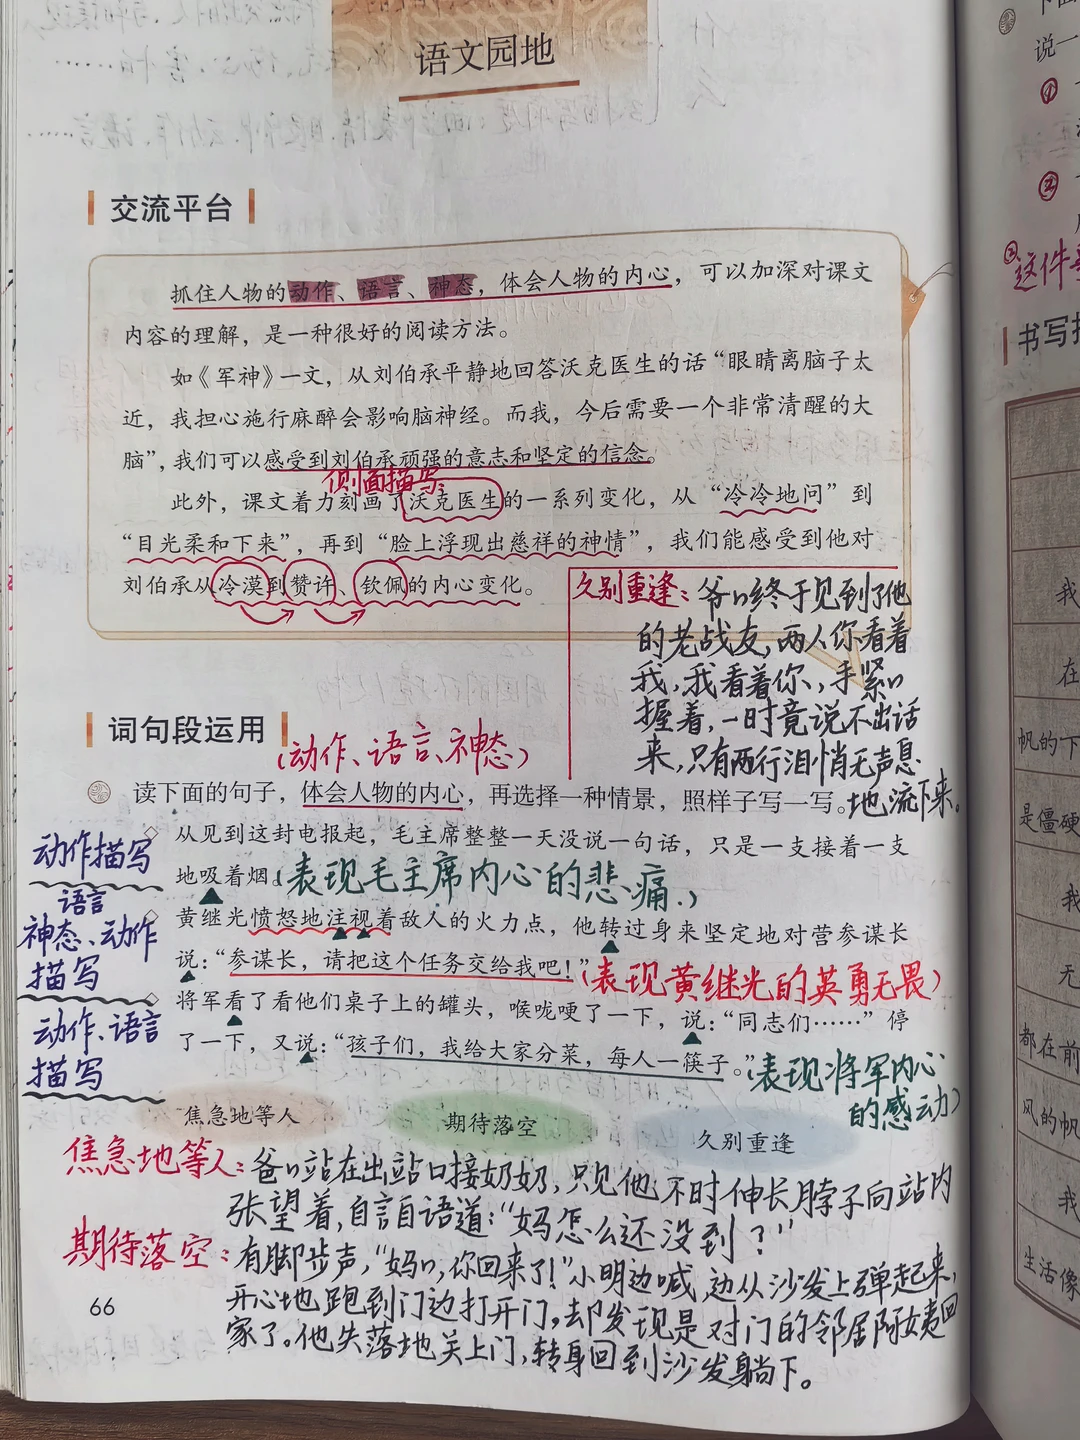 语文园地
交流平台
抓住人物的动作、语言、神态，体会人物的内心，可以加深对课文
内容的理解，是一种很好的阅读方法。
如《军神》一文，从刘伯承平静地回答沃克医生的话“眼睛离脑子太
近，我担心施行麻醉会影响脑神经。而我，今后需要一个非常清醒的大
脑”，我们可以感受到刘伯承顽强的意志和坚定的信念。
侧面描写
此外，课文着力刻画了沃克医生的一系列变化，从“冷冷地问”到
“目光柔和下来”，再到“脸上浮现出慈祥的神情”，我们能感受到他对
刘伯承从冷漠到赞许、钦佩的内心变化。
久别重逢：爷〃终于见到了他
的老战友，两人你看着
我，我看着你，手紧〃
握着，一时竟说不出话
来，只有两行泪悄无声息
地流下来。
词句段运用
（动作、语言、神态）
读下面的句子，体会人物的内心，再选择一种情景，照样子写一写。
动作描写
从见到这封电报起，毛主席整整一天没说一句话，只是一支接着一支
地吸着烟。（表现毛主席内心的悲痛。）
语言
神态、动作
描写
黄继光愤怒地注视着敌人的火力点，他转过身来坚定地对营参谋长
说：“参谋长，请把这个任务交给我吧！”（表现黄继光的英勇无畏）
动作、语言
描写
将军看了看他们桌子上的罐头，喉咙哽了一下，说：“同志们……”停
了一下，又说：“孩子们，我给大家分菜，每人一筷子。”（表现将军内心
的感动）
焦急地等人
期待落空
久别重逢
焦急地等人：爸〃站在出站口接奶奶，只见他不时伸长脖子向站内
张望着，自言自语道：“妈怎么还没到？”
期待落空：有脚步声，“妈〃，你回来了！”小明边喊，边从沙发上弹起来，
开心地跑到门边打开门，却发现是对门的邻居阿姨回
家了。他失落地关上门，转身回到沙发躺下。
66
说一
①
②
③
这件
书写
我
在
帆的下
是僵硬
我
无
都在前
风的帆
我
生活像